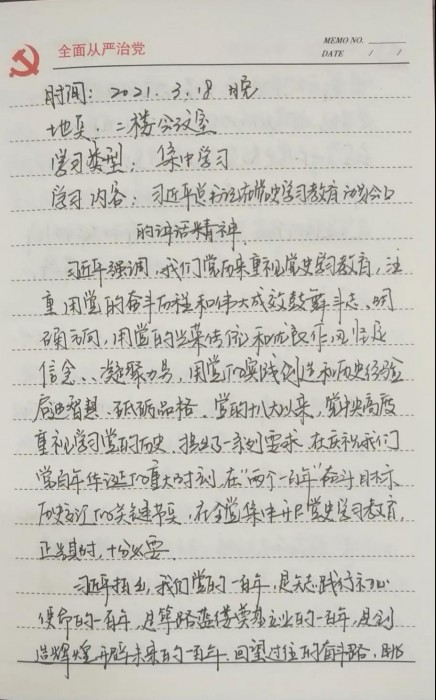 全面从严治党
MEMO NO.
DATE / /
时间: 2021.3.18 晚
地点: 二楼会议室
学习类型: 集中学习
学习内容: 习近平总书记在党史学习教育动员会上
的讲话精神
习近平强调,我们党历来重视党史学习教育,注
重用党的奋斗历程和伟大成就鼓舞斗志、明
确方向,用党的光荣传统和优良作风坚定
信念、凝聚力量,用党的实践创造和历史经验
启迪智慧、砥砺品格。党的十八大以来,党中央高度
重视学习党的历史,提出了一系列要求。在庆祝我们
党百年华诞的重大时刻,在"两个一百年"奋斗目标
历史交汇的关键节点,在全党集中开展党史学习教育,
正当其时,十分必要。
习近平指出,我们党的一百年,是矢志践行初心
使命的一百年,是筚路蓝缕奠基立业的一百年,是创
造辉煌开辟未来的一百年。回望过往的奋斗路,眺